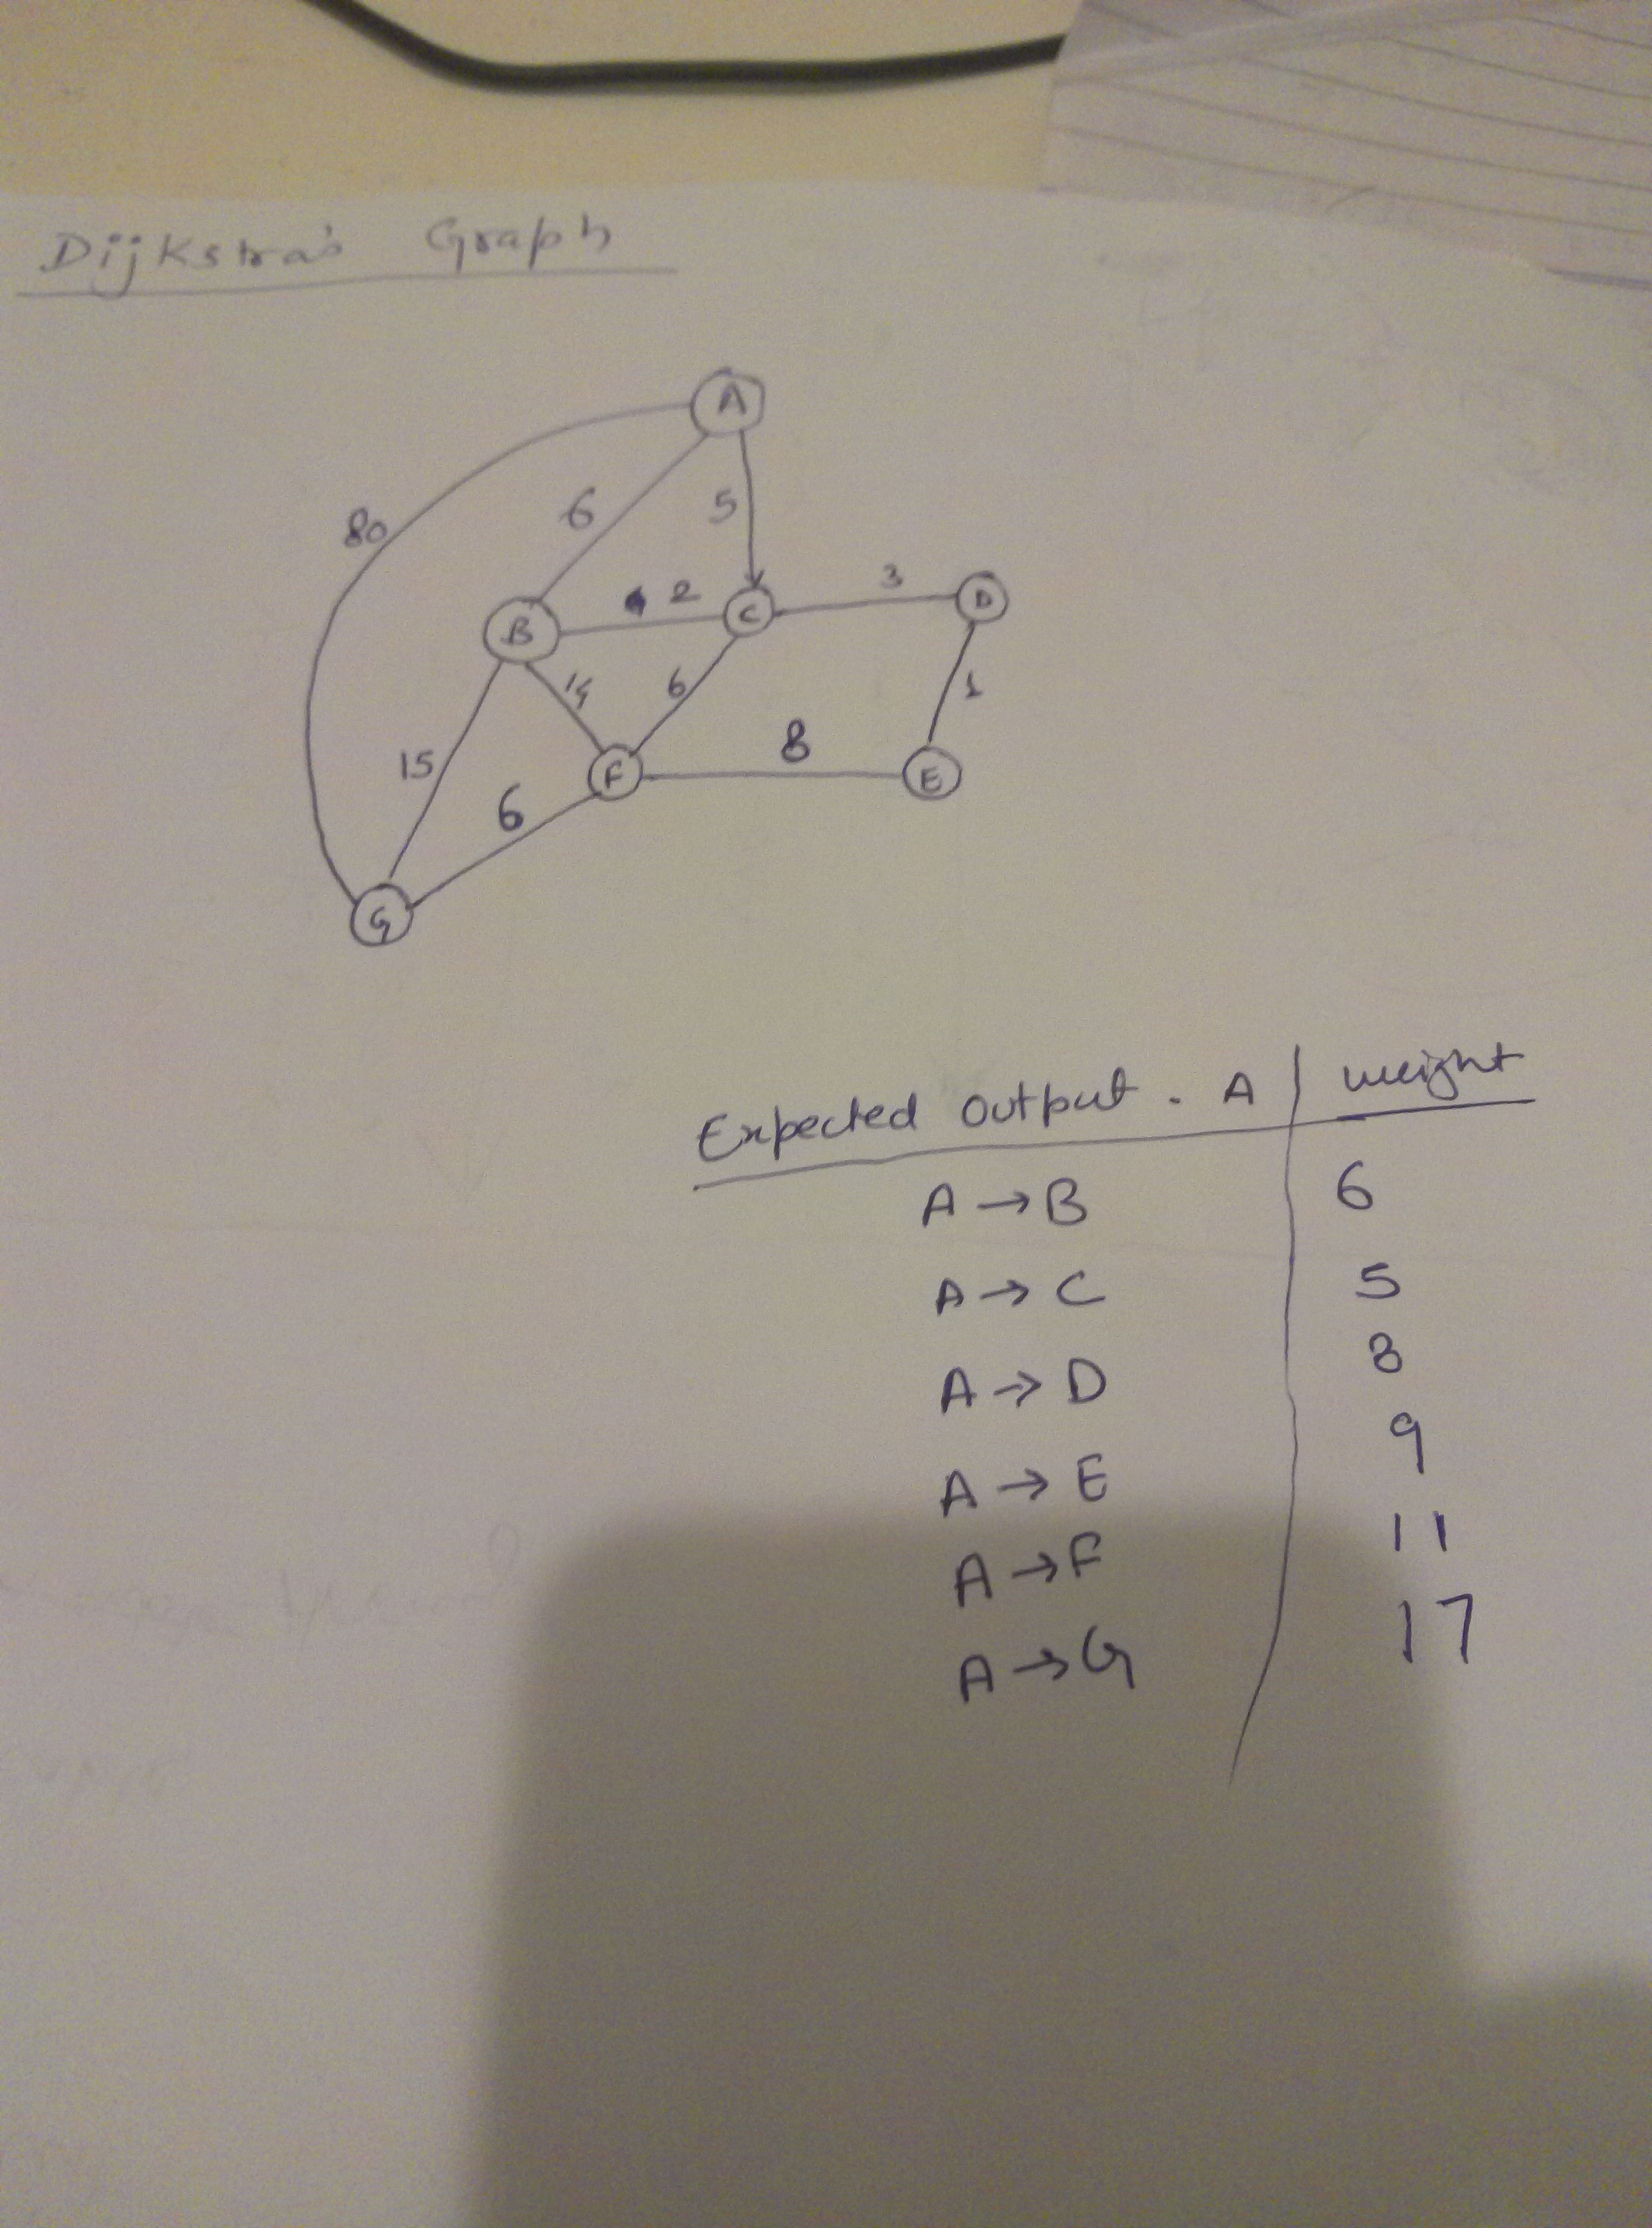 Dijkstra's Graph
A
80
6
5
2
3
B
C
D
14
6
1
15
8
F
E
6
G
Expected Output . A | weight
A → B 6
A → C 5
A → D 8
A → E 9
A → F 11
A → G 17